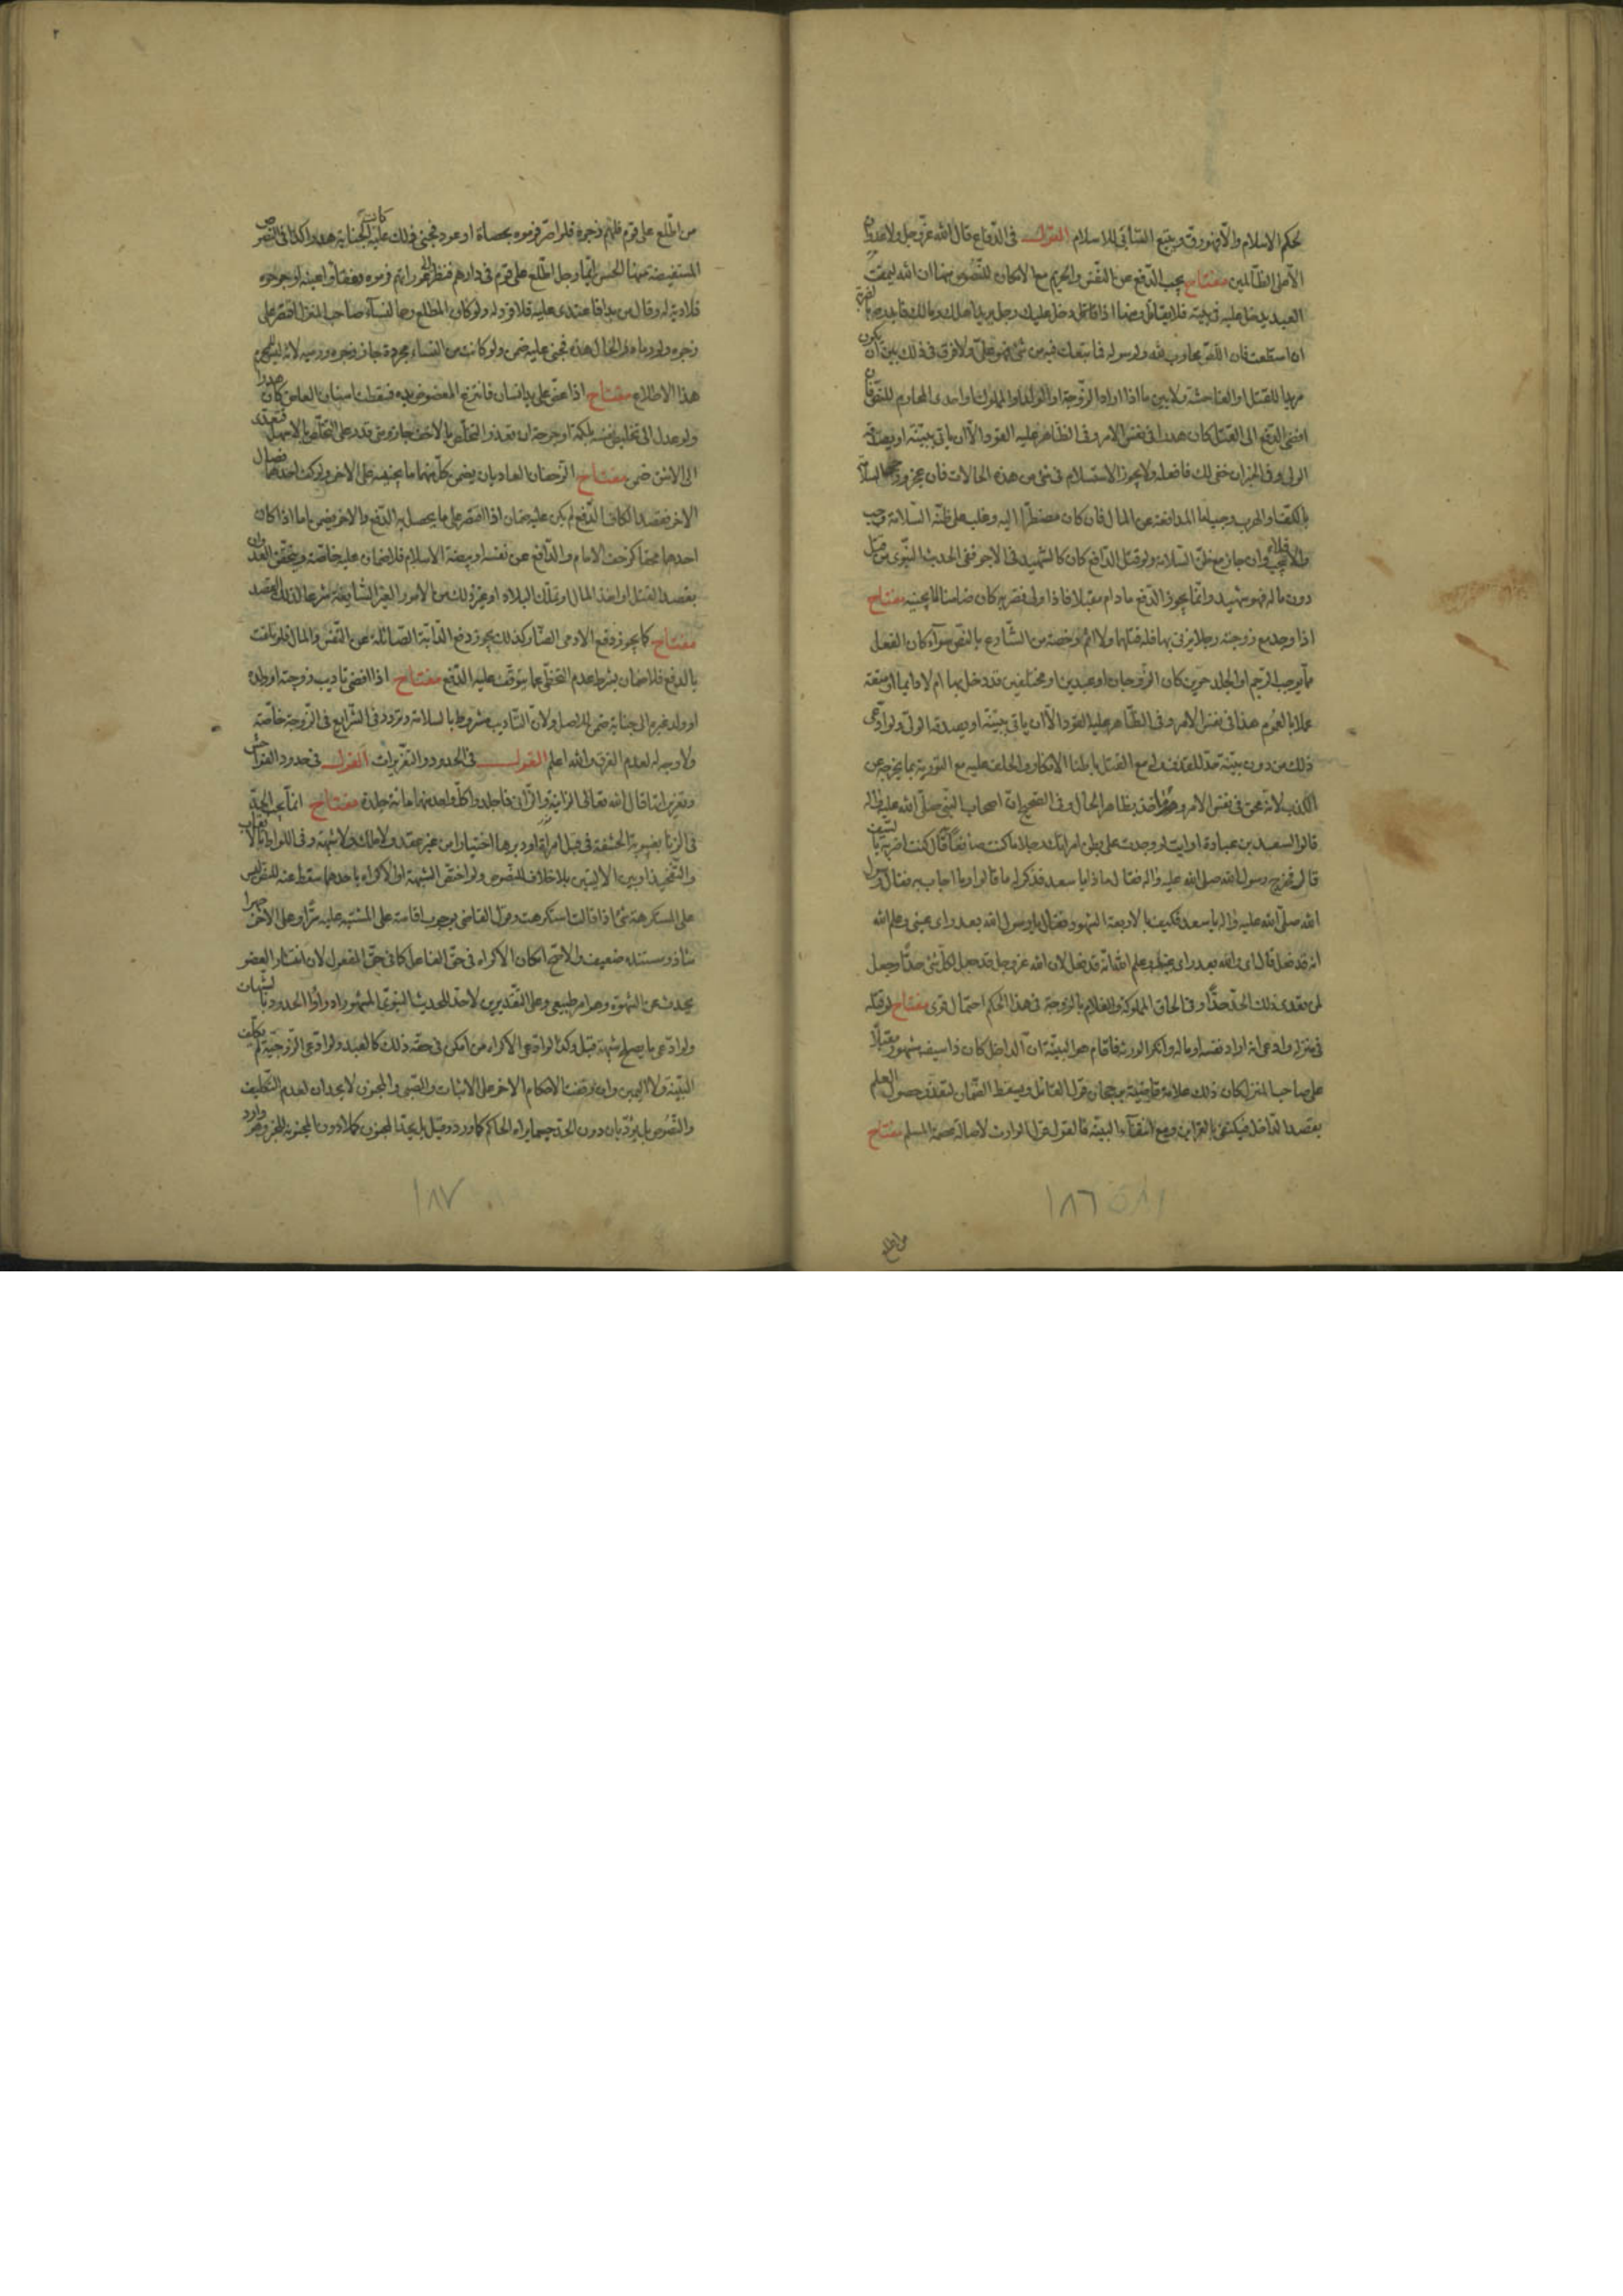 بحكم الاسلام والا فهو رق ويتبع السابي للاسلام القول في الدفاع قال الله عز وجل ولا عدوان
الا على الظالمين مفتاح يجب الدفع عن النفس والحريم مع الامكان للنصوص منها ان الله ليمقت
العبد يدخل عليه في بيته فلا يقاتل ومنها اذا دخل عليك رجل يريد اهلك ومالك فابدره بالضربة
ان استطعت فان اللص محارب لله ولرسوله فما تبعك فيه من شئ فهو علي ولا فرق في ذلك بين ان يكون
مريدا للقتل او الفاحشة ولا بين ما اذا اراد الزوجة او الولد او المملوك او احدى المحارم للنص فان
افضى الدفع الى القتل كان هدرا في نفس الامر وفي الظاهر عليه القود الا ان ياتي ببينة او يصدقه
الولي وفي الجيران خفي لك فافعله ولا يجوز الاستسلام في شئ من هذه الحالات فان عجز ورجا السلامة
بالكف او الهرب وجب اما المدافعة عن المال فان كان مضطرا اليه وغلب على ظنه السلامة وجب
والا فلا يجب وان جاز مع ظن السلامة ولو قتل الدافع كان كالشهيد في الاجر ففي الحديث النبوي من قتل
دون ماله فهو شهيد وانما يجوز الدفع ما دام مقبلا فاذا ولى فضربه كان ضامنا لما يجنيه مفتاح
اذا وجد مع زوجته رجلا يزني بها فله قتلهما ولا اثم رخصة من الشارع بالنص سواء كان الفعل
مما يوجب الرجم او الجلد حرين كان الزوجان او عبدين او مختلفين قد دخل بها ام لا دائما او متعة
عملا بالعموم هذا في نفس الامر وفي الظاهر عليه القود الا ان ياتي ببينة او يصدقه الولي ولو ادعى
ذلك من دون بينة حد للقذف وله مع القتل باطنا الانكار والحلف عليه مع التورية بما يخرجه عن
الكذب لانه محق في نفس الامر وهو مؤاخذ بظاهر الحال وفي الصحيح ان اصحاب النبي صلى الله عليه واله
قالوا لسعد بن عبادة ارايت لو وجدت على بطن امراتك رجلا ما كنت صانعا قال كنت اضربه بالسيف
قال فخرج رسول الله صلى الله عليه واله فقال ماذا يا سعد فذكر له ما قالوا وما اجاب به فقال رسول
الله صلى الله عليه واله يا سعد فكيف بالاربعة الشهود فقال يا رسول الله بعد راي عيني وعلم الله
انه قد فعل قال اي والله بعد راي عينك وعلم الله انه قد فعل لان الله عز وجل قد جعل لكل شئ حدا وجعل
لمن تعدى ذلك الحد حدا وفي الحاق المملوكة والغلام بالزوجة في هذا الحكم احتمال قوي مفتاح لو قتله
في منزله وادعى انه اراد نفسه او ماله وانكر الورثة فاقام هو البينة ان الداخل كان ذا سيف مشهور مقبلا
على صاحب المنزل كان ذلك علامة قاضية برجحان قول القاتل ويسقط الضمان لتعذر حصول العلم
بقصد الداخل فيكتفى بالقراين ومع انتفاء البينة فالقول قول الوارث لاصالة عصمة المسلم مفتاح
١٨٦
من اطلع على قوم فلهم زجره فلو اصر فرموه بحصاة او عود فجنى ذلك عليه كانت الجناية هدرا كذا في النصوص
المستفيضة منها الحسن ايما رجل اطلع على قوم في دارهم لينظر الى عوراتهم فرموه ففقأوا عينه او جرحوه
فلا دية له وقال من بدا فاعتدى عليه فلا قود له ولو كان المطلع رحما لنساء صاحب المنزل اقتصر على
زجره ولو رماه والحال هذه فجنى عليه ضمن ولو كانت من النساء مجردة جاز زجره ورميه لانه ليس للمحرم
هذا الاطلاع مفتاح اذا عض على يد انسان فانتزع المعضوض يده فسقطت اسنان العاض كان هدرا
ولو عدل الى تخليص نفسه بلكمة او جرحه ان تعذر التخلص بالاخف جاز ومتى قدر على التخلص بالاسهل فتعدى
الى الاشق ضمن مفتاح الزحفان العاديان يضمن كل منهما ما يجنيه على الاخر ولو كف احدهما فصال
الاخر فقصد الكاف الدفع لم يكن عليه ضمان اذا اقتصر على ما يحصل به الدفع والاخر يضمن اما اذا كان
احدهما محقا كزحف الامام والدافع عن نفسه او بيضة الاسلام فلا ضمان عليه خاصة ويتحقق العدوان
بقصد القتل او اخذ المال او تملك البلاد او غير ذلك من الامور الغير السائغة شرعا لذلك القصد
مفتاح كما يجوز دفع الادمى الضار كذلك يجوز دفع الدابة الصائلة عن النفس والمال فلو تلفت
بالدفع فلا ضمان بشرط عدم التخطي عما يتوقف عليه الدفع مفتاح اذا افضى تاديب زوجته او ولده
او ولد غيره الى جناية ضمن للاصل ولان التاديب مشروط بالسلامة وتردد في الشرايع في الزوجة خاصة
ولا وجه له لعدم الفرق والله اعلم القول في الحدود والتعزيرات القول في حدود الفواحش
وتعزيراتها قال الله تعالى الزانية والزاني فاجلدوا كل واحد منهما مائة جلدة مفتاح انما يجب الحد
في الزنا بغيبوبة الحشفة في قبل امراة او دبرها اختيارا من غير عقد ولا ملك ولا شبهة وفي اللواط بالايقاب
والتفخيذ او بين الاليتين بلا خلاف للنصوص ولو اختص الشبهة او الاكراه باحدهما سقط عنه للنص ليس
على المستكرهة شئ اذا قالت استكرهت وقول القاضي بوجوب اقامته على المشتبه عليه سرا وعلى الاخر جهرا
شاذ ومستنده ضعيف والاصح امكان الاكراه في حق الفاعل كما في حق المفعول لان انتشار العضو
يحدث عن الشهوة وهو امر طبيعي وعلى التقديرين لا حد للحديث النبوي المشهور ادراوا الحدود بالشبهات
ولو ادعى ما يصلح شبهة قبل وكذا لو ادعى الاكراه من امكن في حقه ذلك كالعبد ولو ادعى الزوجية لم يكلف
البينة ولا اليمين وان توقفت الاحكام الاخر على الاثبات والصبي والمجنون لا يحدان لعدم التكليف
والنصوص بل يؤدبان دون الحد حسبما يراه الحاكم كما ورد وقيل بل يحد المجنون كملا دون المجنونة للخبر وهو وارد
١٨٧